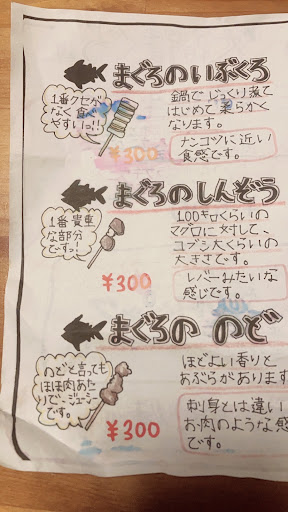 まぐろのいぶくろ
1番クセが
なく食べ
やすいっ!!
¥300
鍋でじっくり煮て
はじめて柔らかく
なります。
ナンコツに近い
食感です。
まぐろのしんぞう
1番貴重
な部分
ですっ!
¥300
100キロくらいの
マグロに対して、
コブシ大くらいの
大きさです。
レバーみたいな
感じです。
まぐろの のど
のどと言っても
ほほ肉あた
りで…ジューシー
です。
¥300
ほどよい香りと
あぶらがあります
刺身とは違い
お肉のような感
です。